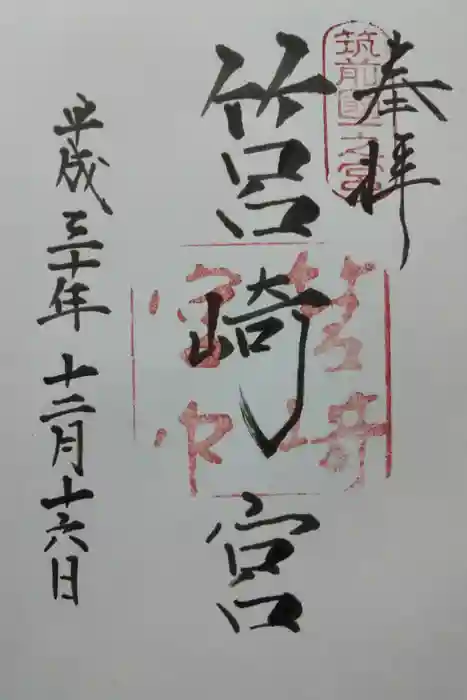 奉拝
筑前國一之宮
筥崎宮
筥崎
宮印
平成三十年十二月十六日